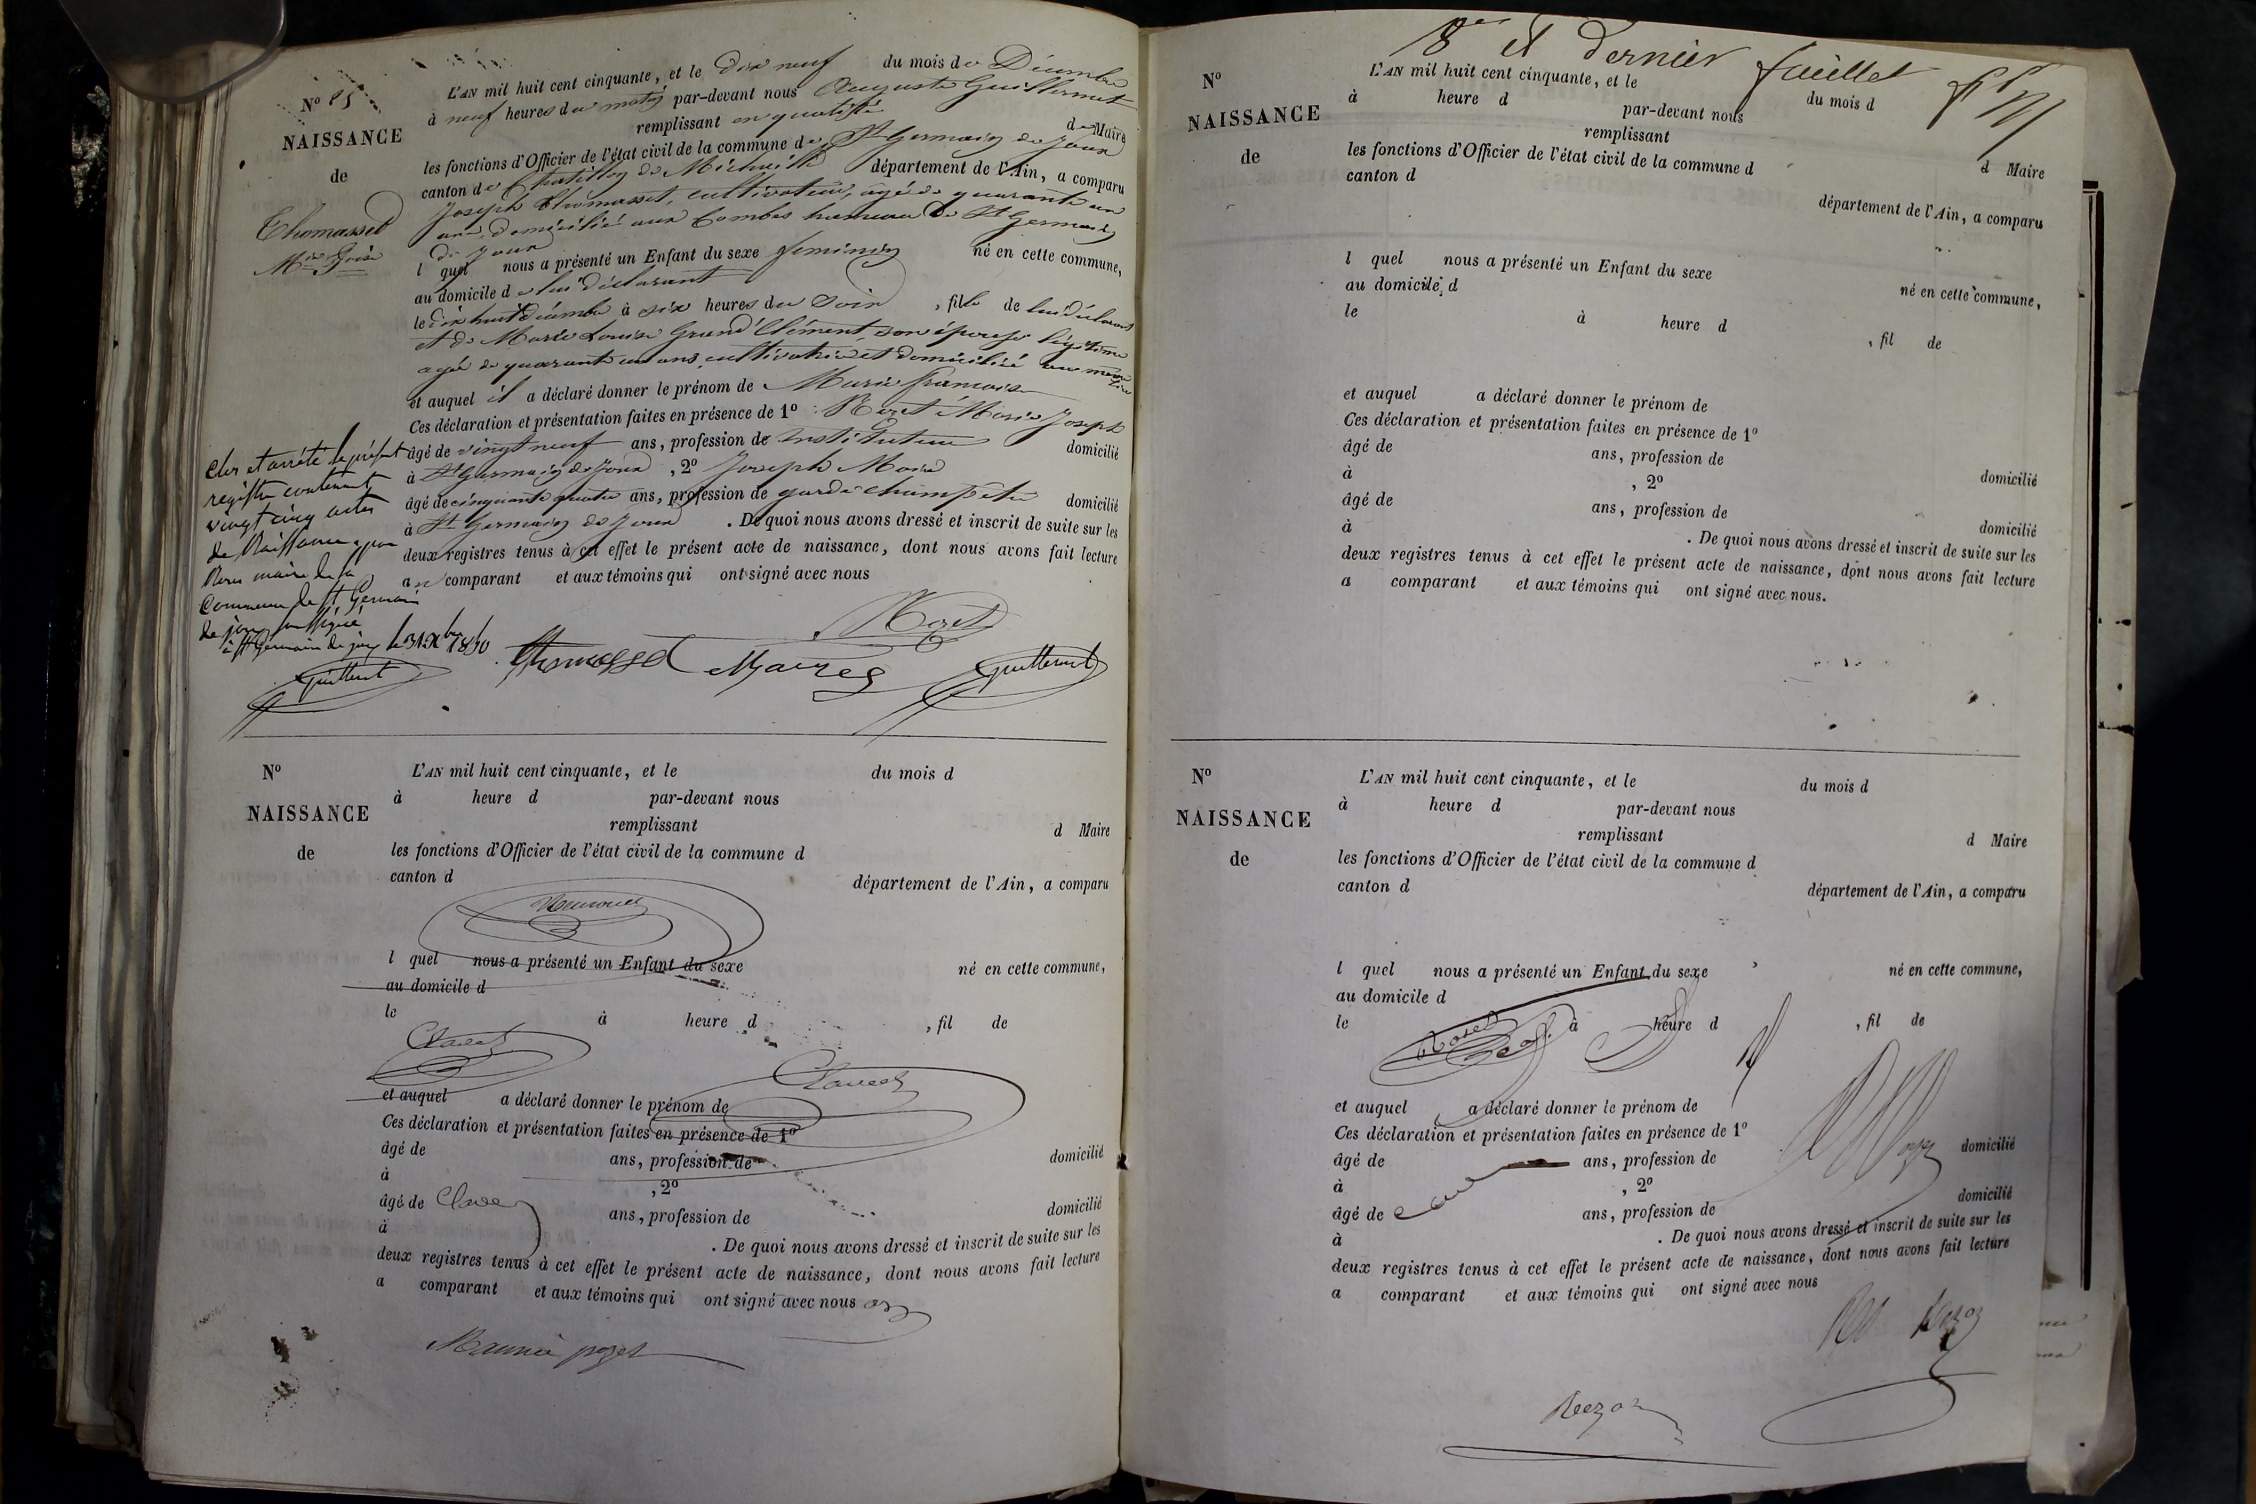 N° 25
NAISSANCE
de
Thomasset
L'AN mil huit cent cinquante, et le dix neuf du mois de Décembre
à neuf heures du matin par-devant nous Auguste Guillermet
remplissant en qualité de Maire
les fonctions d'Officier de l'état civil de la commune de St Germain de Joux
canton de Chatillon de Michaille département de l'Ain, a comparu
Joseph Thomasset, cultivateur, agé de quarante un
ans, domicilié aux Combes hameau de St Germain
de Joux
l quel nous a présenté un Enfant du sexe feminin né en cette commune,
au domicile de lui déclarant
le dix huit décembre à six heures du soir, fille de lui déclarant
et de Marie Louise Grand Clément, son épouse légitime
agée de quarante un ans, cultivatrice et domiciliée au même lieu
et auquel il a déclaré donner le prénom de Marie françoise
Ces déclaration et présentation faites en présence de 1° Rozet Marie Joseph
âgé de vingt neuf ans, profession de instituteur domicilié
à St Germain de Joux, 2° Joseph Maire
âgé de cinquante quatre ans, profession de garde champêtre domicilié
à St Germain de Joux. De quoi nous avons dressé et inscrit de suite sur les
deux registres tenus à cet effet le présent acte de naissance, dont nous avons fait lecture
au comparant et aux témoins qui ont signé avec nous
clos et arrêté le présent
registre contenant
vingt cinq actes
de Naissance par
Nous maire de la
Commune de St Germain
de joux soussigné
à St Germain de joux le 31 Xbre 1850
Guillermet
Rozet
Thomasset
Guillermet
N°
NAISSANCE
de
L'AN mil huit cent cinquante, et le du mois d
à heure d par-devant nous
remplissant d Maire
les fonctions d'Officier de l'état civil de la commune d
canton d département de l'Ain, a comparu
l quel nous a présenté un Enfant du sexe né en cette commune,
au domicile d
le à heure d , fil de
et auquel a déclaré donner le prénom de
Ces déclaration et présentation faites en présence de 1°
âgé de ans, profession de domicilié
à , 2°
âgé de ans, profession de domicilié
à . De quoi nous avons dressé et inscrit de suite sur les
deux registres tenus à cet effet le présent acte de naissance, dont nous avons fait lecture
a comparant et aux témoins qui ont signé avec nous
8e et dernier feuillet
N°
NAISSANCE
de
L'AN mil huit cent cinquante, et le du mois d
à heure d par-devant nous
remplissant d Maire
les fonctions d'Officier de l'état civil de la commune d
canton d département de l'Ain, a comparu
l quel nous a présenté un Enfant du sexe né en cette commune,
au domicile d
le à heure d , fil de
et auquel a déclaré donner le prénom de
Ces déclaration et présentation faites en présence de 1°
âgé de ans, profession de domicilié
à , 2°
âgé de ans, profession de domicilié
à . De quoi nous avons dressé et inscrit de suite sur les
deux registres tenus à cet effet le présent acte de naissance, dont nous avons fait lecture
a comparant et aux témoins qui ont signé avec nous.
N°
NAISSANCE
de
L'AN mil huit cent cinquante, et le du mois d
à heure d par-devant nous
remplissant d Maire
les fonctions d'Officier de l'état civil de la commune d
canton d département de l'Ain, a comparu
l quel nous a présenté un Enfant du sexe né en cette commune,
au domicile d
le à heure d , fil de
et auquel a déclaré donner le prénom de
Ces déclaration et présentation faites en présence de 1°
âgé de ans, profession de domicilié
à , 2°
âgé de ans, profession de domicilié
à . De quoi nous avons dressé et inscrit de suite sur les
deux registres tenus à cet effet le présent acte de naissance, dont nous avons fait lecture
a comparant et aux témoins qui ont signé avec nous